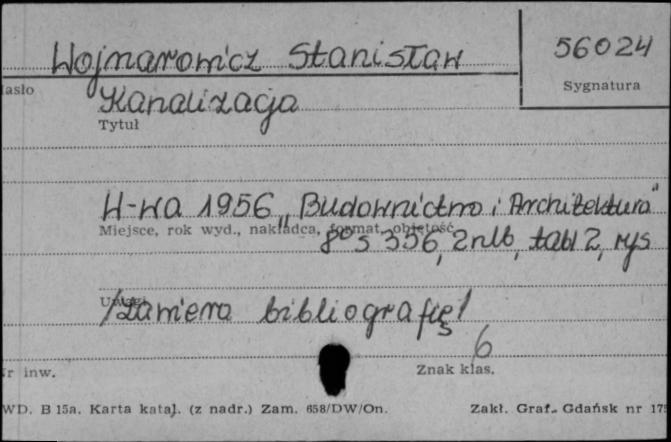 Wojnarowicz Stanisław
56024
asło
Sygnatura
Kanalizacja
Tytuł
W-wa 1956 „Budownictwo i Architektura"
Miejsce, rok wyd., nakładca, format, objętość
8° s 356, 2nlb, tabl 2, rys
Uwagi
/zawiera bibliografię/
6
r inw.
Znak klas.
WD. B 15a. Karta katal. (z nadr.) Zam. 658/DW/On.
Zakł. Graf. Gdańsk nr 175